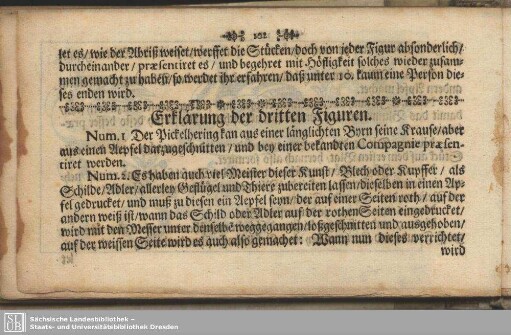 102
let es/ wie der Abriß weiset/ werffet die Stücken/ doch von jeder Figur absonderlich/
durcheinander/ præsentiret es/ und begehret mit Höfligkeit solches wieder zusam-
men gemacht zu haben/ so werdet ihr erfahren/ daß unter 10. kaum eine Person die-
ses enden wird.
Erklärung der dritten Figuren.
Num. 1 Der Pickelhering kan aus einer länglichten Byrn seine Krause/ aber
aus einen Aepfel darzugeschnitten/ und bey einer bekandten Compagnie præsen-
tiret werden.
Num. 2. Es haben auch viel Meister dieser Kunst/ Blech oder Kupffer/ als
Schilde/ Adler/ allerley Geflügel und Thiere zubereiten lassen/ dieselben in einen Ap-
fel gedrucket/ und muß zu diesen ein Aepfel seyn/ der auf einer Seiten roth/ auf der
andern weiß ist/ wann das Schild oder Adler auf der rothen Seiten eingedrucket/
wird mit den Messer unter denselben weggegangen/ loßgeschnitten und ausgehoben/
auf der weissen Seite wird es auch also gemachet: Wann nun dieses verrichtet/
wird
SLUB
Sächsische Landesbibliothek –
Staats- und Universitätsbibliothek Dresden